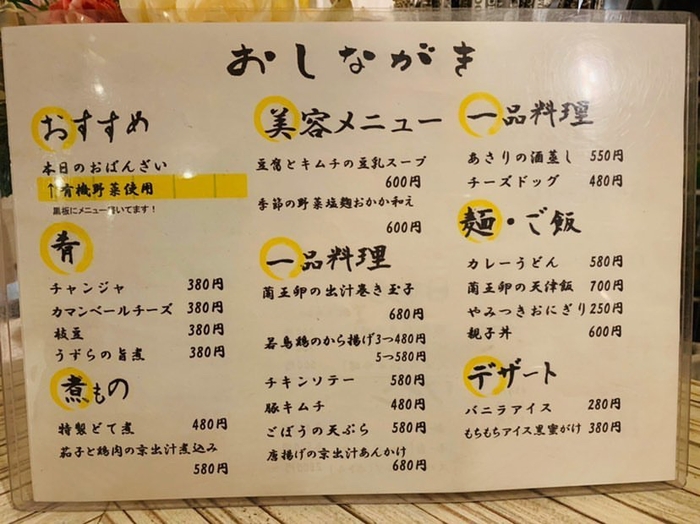 おしながき
おすすめ
本日のおばんざい
↑有機野菜使用
黒板にメニュー書いてます！
肴
チャンジャ 380円
カマンベールチーズ 380円
枝豆 380円
うずらの旨煮 380円
煮もの
特製どて煮 480円
茄子と鶏肉の京出汁煮込み
580円
美容メニュー
豆腐とキムチの豆乳スープ
600円
季節の野菜塩麹おかか和え
600円
一品料理
蘭王卵の出汁巻き玉子
680円
若鳥鶏のから揚げ3つ480円
5つ580円
チキンソテー 580円
豚キムチ 480円
ごぼうの天ぷら 580円
唐揚げの京出汁あんかけ
680円
一品料理
あさりの酒蒸し 550円
チーズドッグ 480円
麺・ご飯
カレーうどん 580円
蘭王卵の天津飯 700円
やみつきおにぎり 250円
親子丼 600円
デザート
バニラアイス 280円
もちもちアイス黒蜜がけ 380円